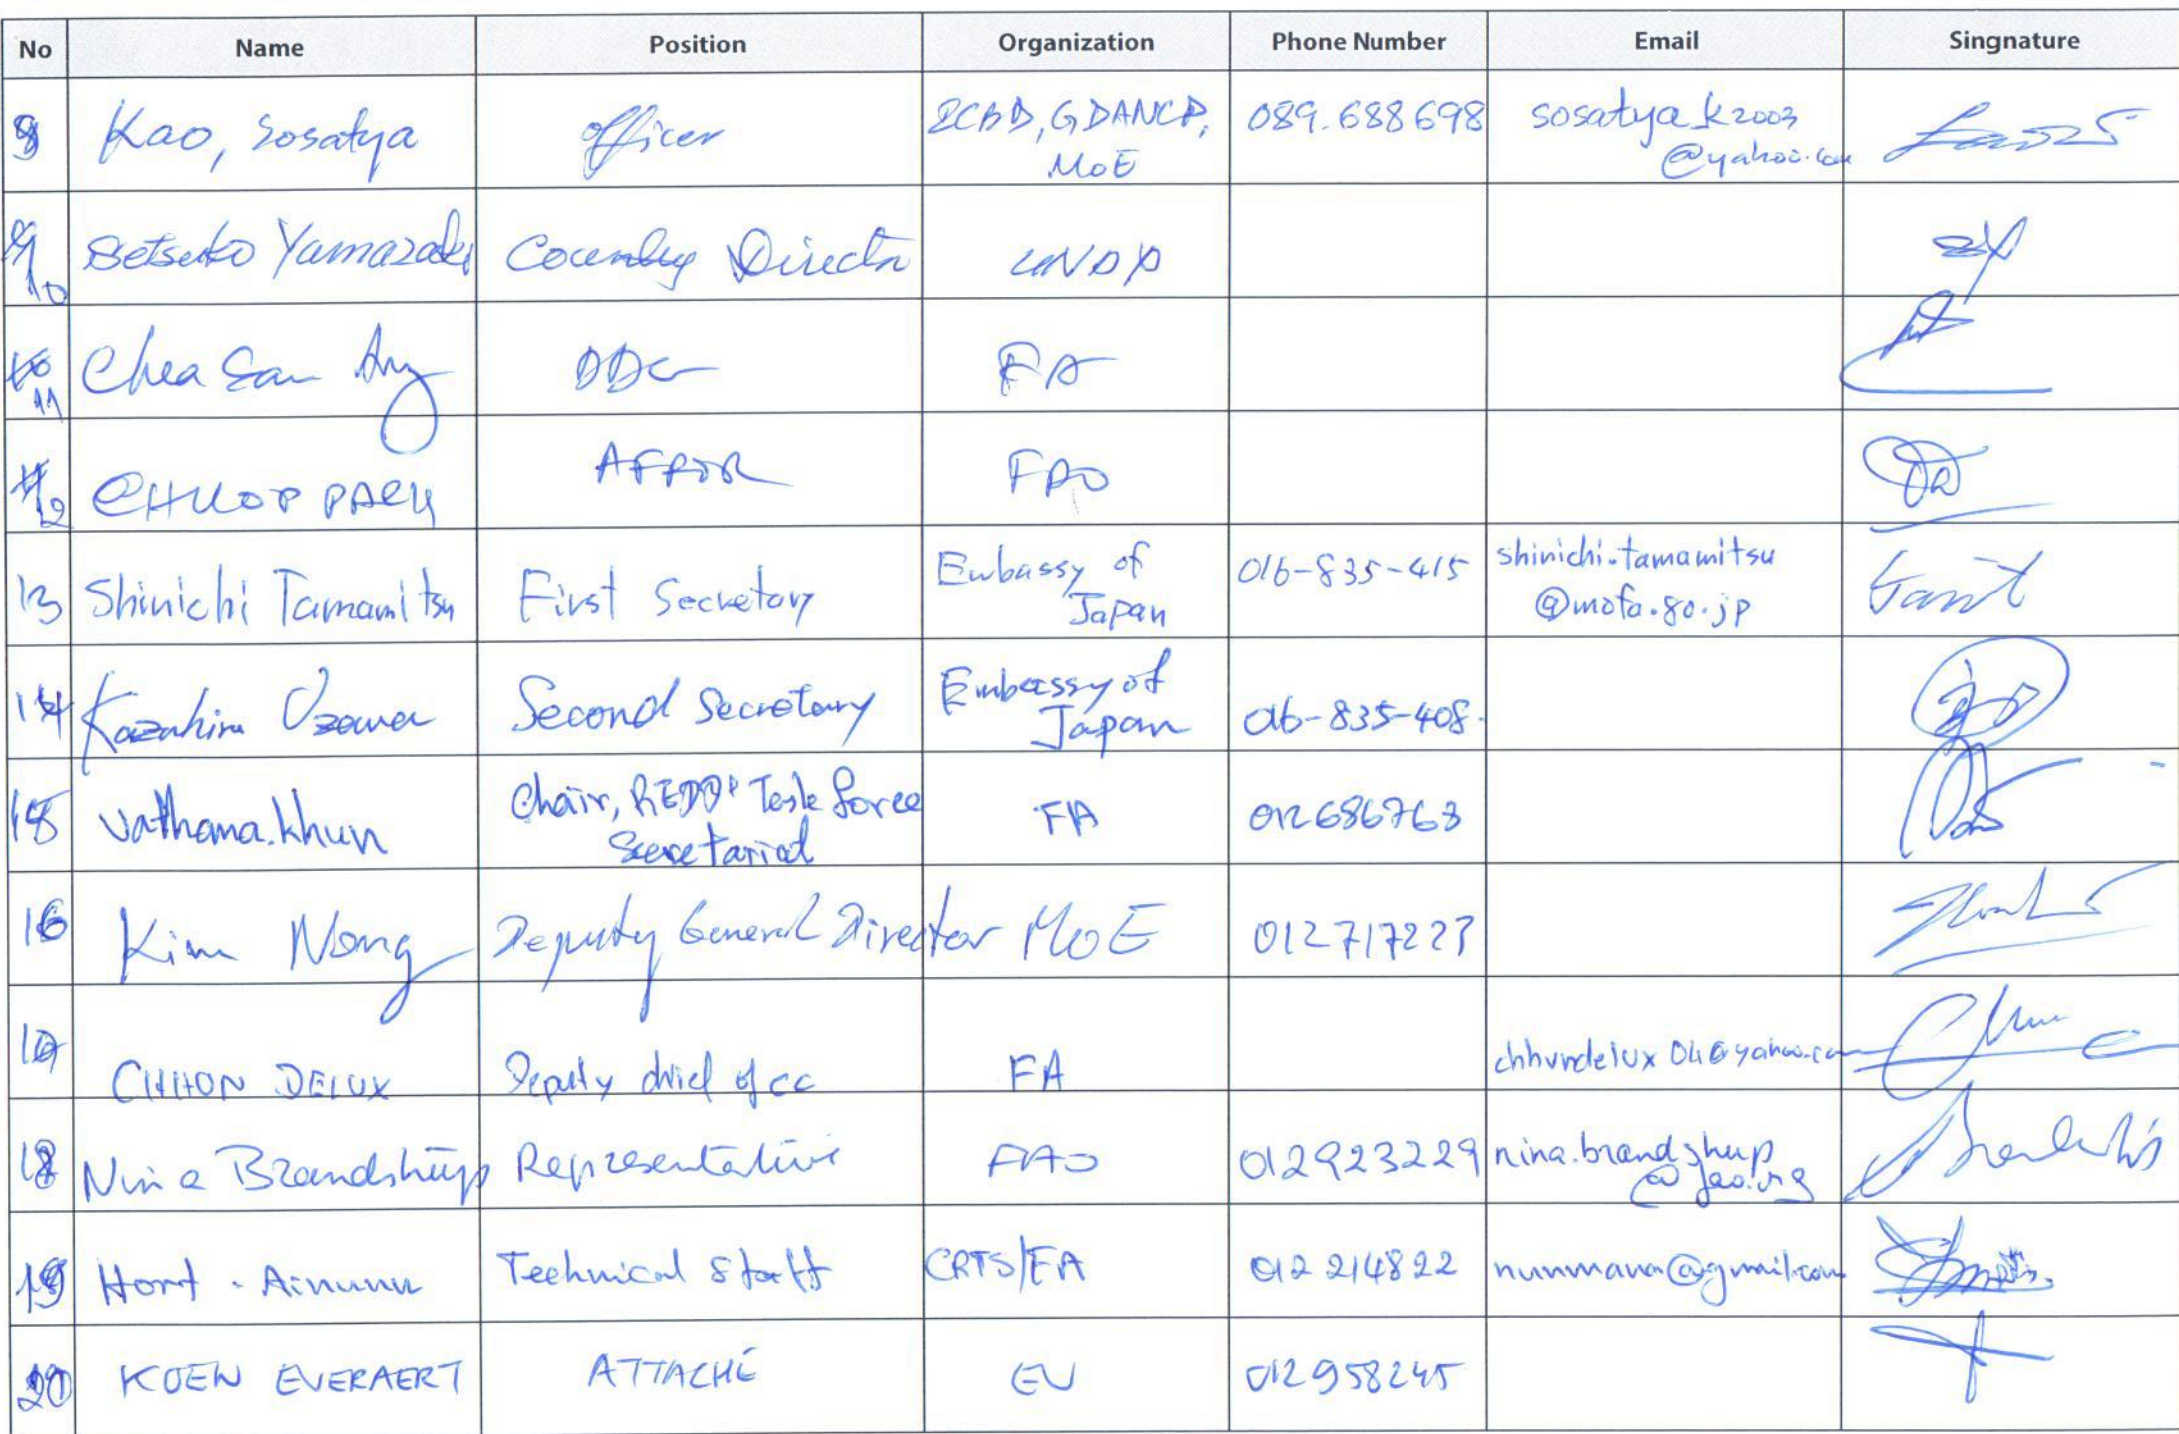 No Name Position Organization Phone Number Email Singnature
9 Kao, Sosatya officer GDANCP, 089.688698 sosatya_k2003
MoE @yahoo.com
10 Setsuko Yamazaki Country Director UNDP
11 Chea Sam Ang DDG FA
12 AFPOR FAO
13 Shinichi Tamamitsu First Secretary Embassy of 016-835-415 shinichi.tamamitsu
Japan @mofa.go.jp
14 Kazuhiro Ozawa Second Secretary Embassy of 016-835-408
Japan
15 Vathana.khun Chair, REDD+ Task force FA 012686763
Secretariat
16 Kim Nong Deputy General Director MoE 012717223
CHHON DELUX Deputy chief of cc FA
18 Nina Brandstrup Representative FAO 012923229 nina.brandstrup
@fao.org
19 Hort Technical Staff FA 012 214822
20 KOEN EVERAERT ATTACHÉ EU 012958245